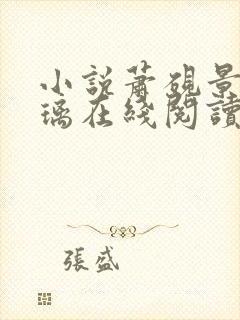 小說蕭硯景
璃在綫閱讀
張盛